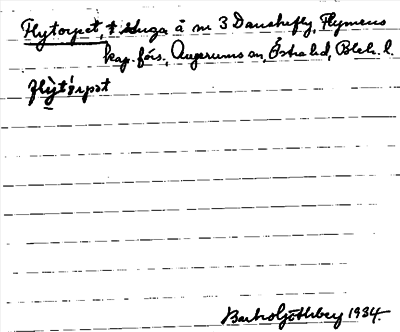 Flytorpet, † stuga å nr 3 Danskefly, Flymens
kap. förs., Augerums sn, Östra hd, Blek. l.
flỳtårpət
Barbro Götherberg 1934.